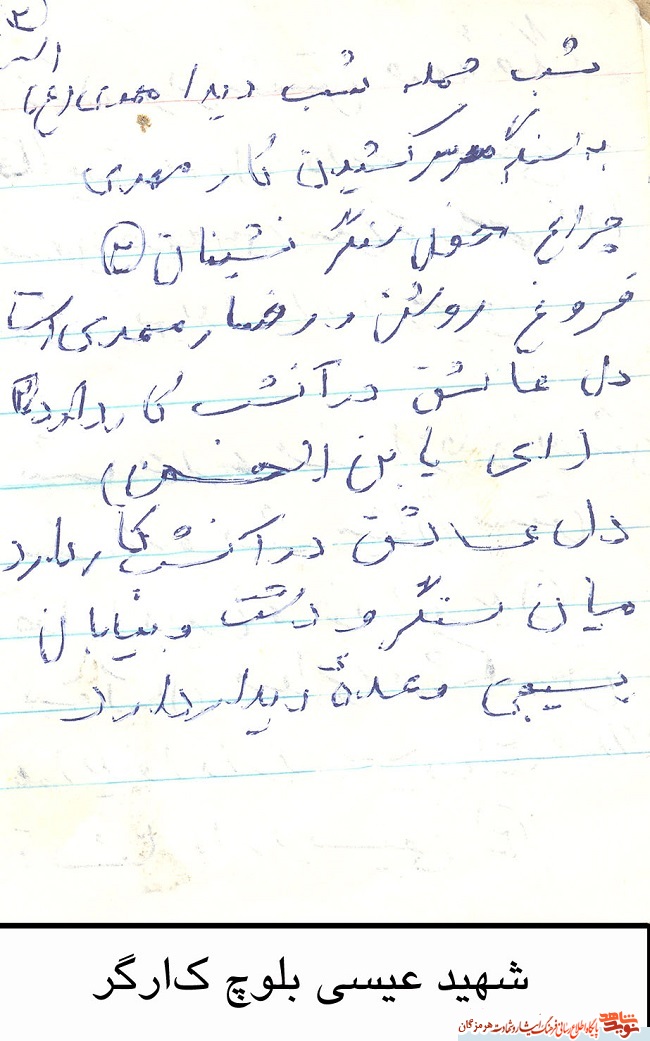 ۲
شب حمله شب دیدا مهدی (عج) است
به سنگر سرکشیدن کار مهدی
چراغ محفل سنگر نشینان (۲)
فروغ روشن رخسار مهدی است
دل عاشق در آتش کار دارد
(ای یابن الحسن)
دل عاشق در آتش کار دارد
میان سنگر و دشت و بیابان
بسیجی وعدهٔ دیدار دارد
شهید عیسی بلوچ کارگر
نوید شاهد پایگاه اطلاع رسانی فرهنگ ایثار و شهادت هرمزگان